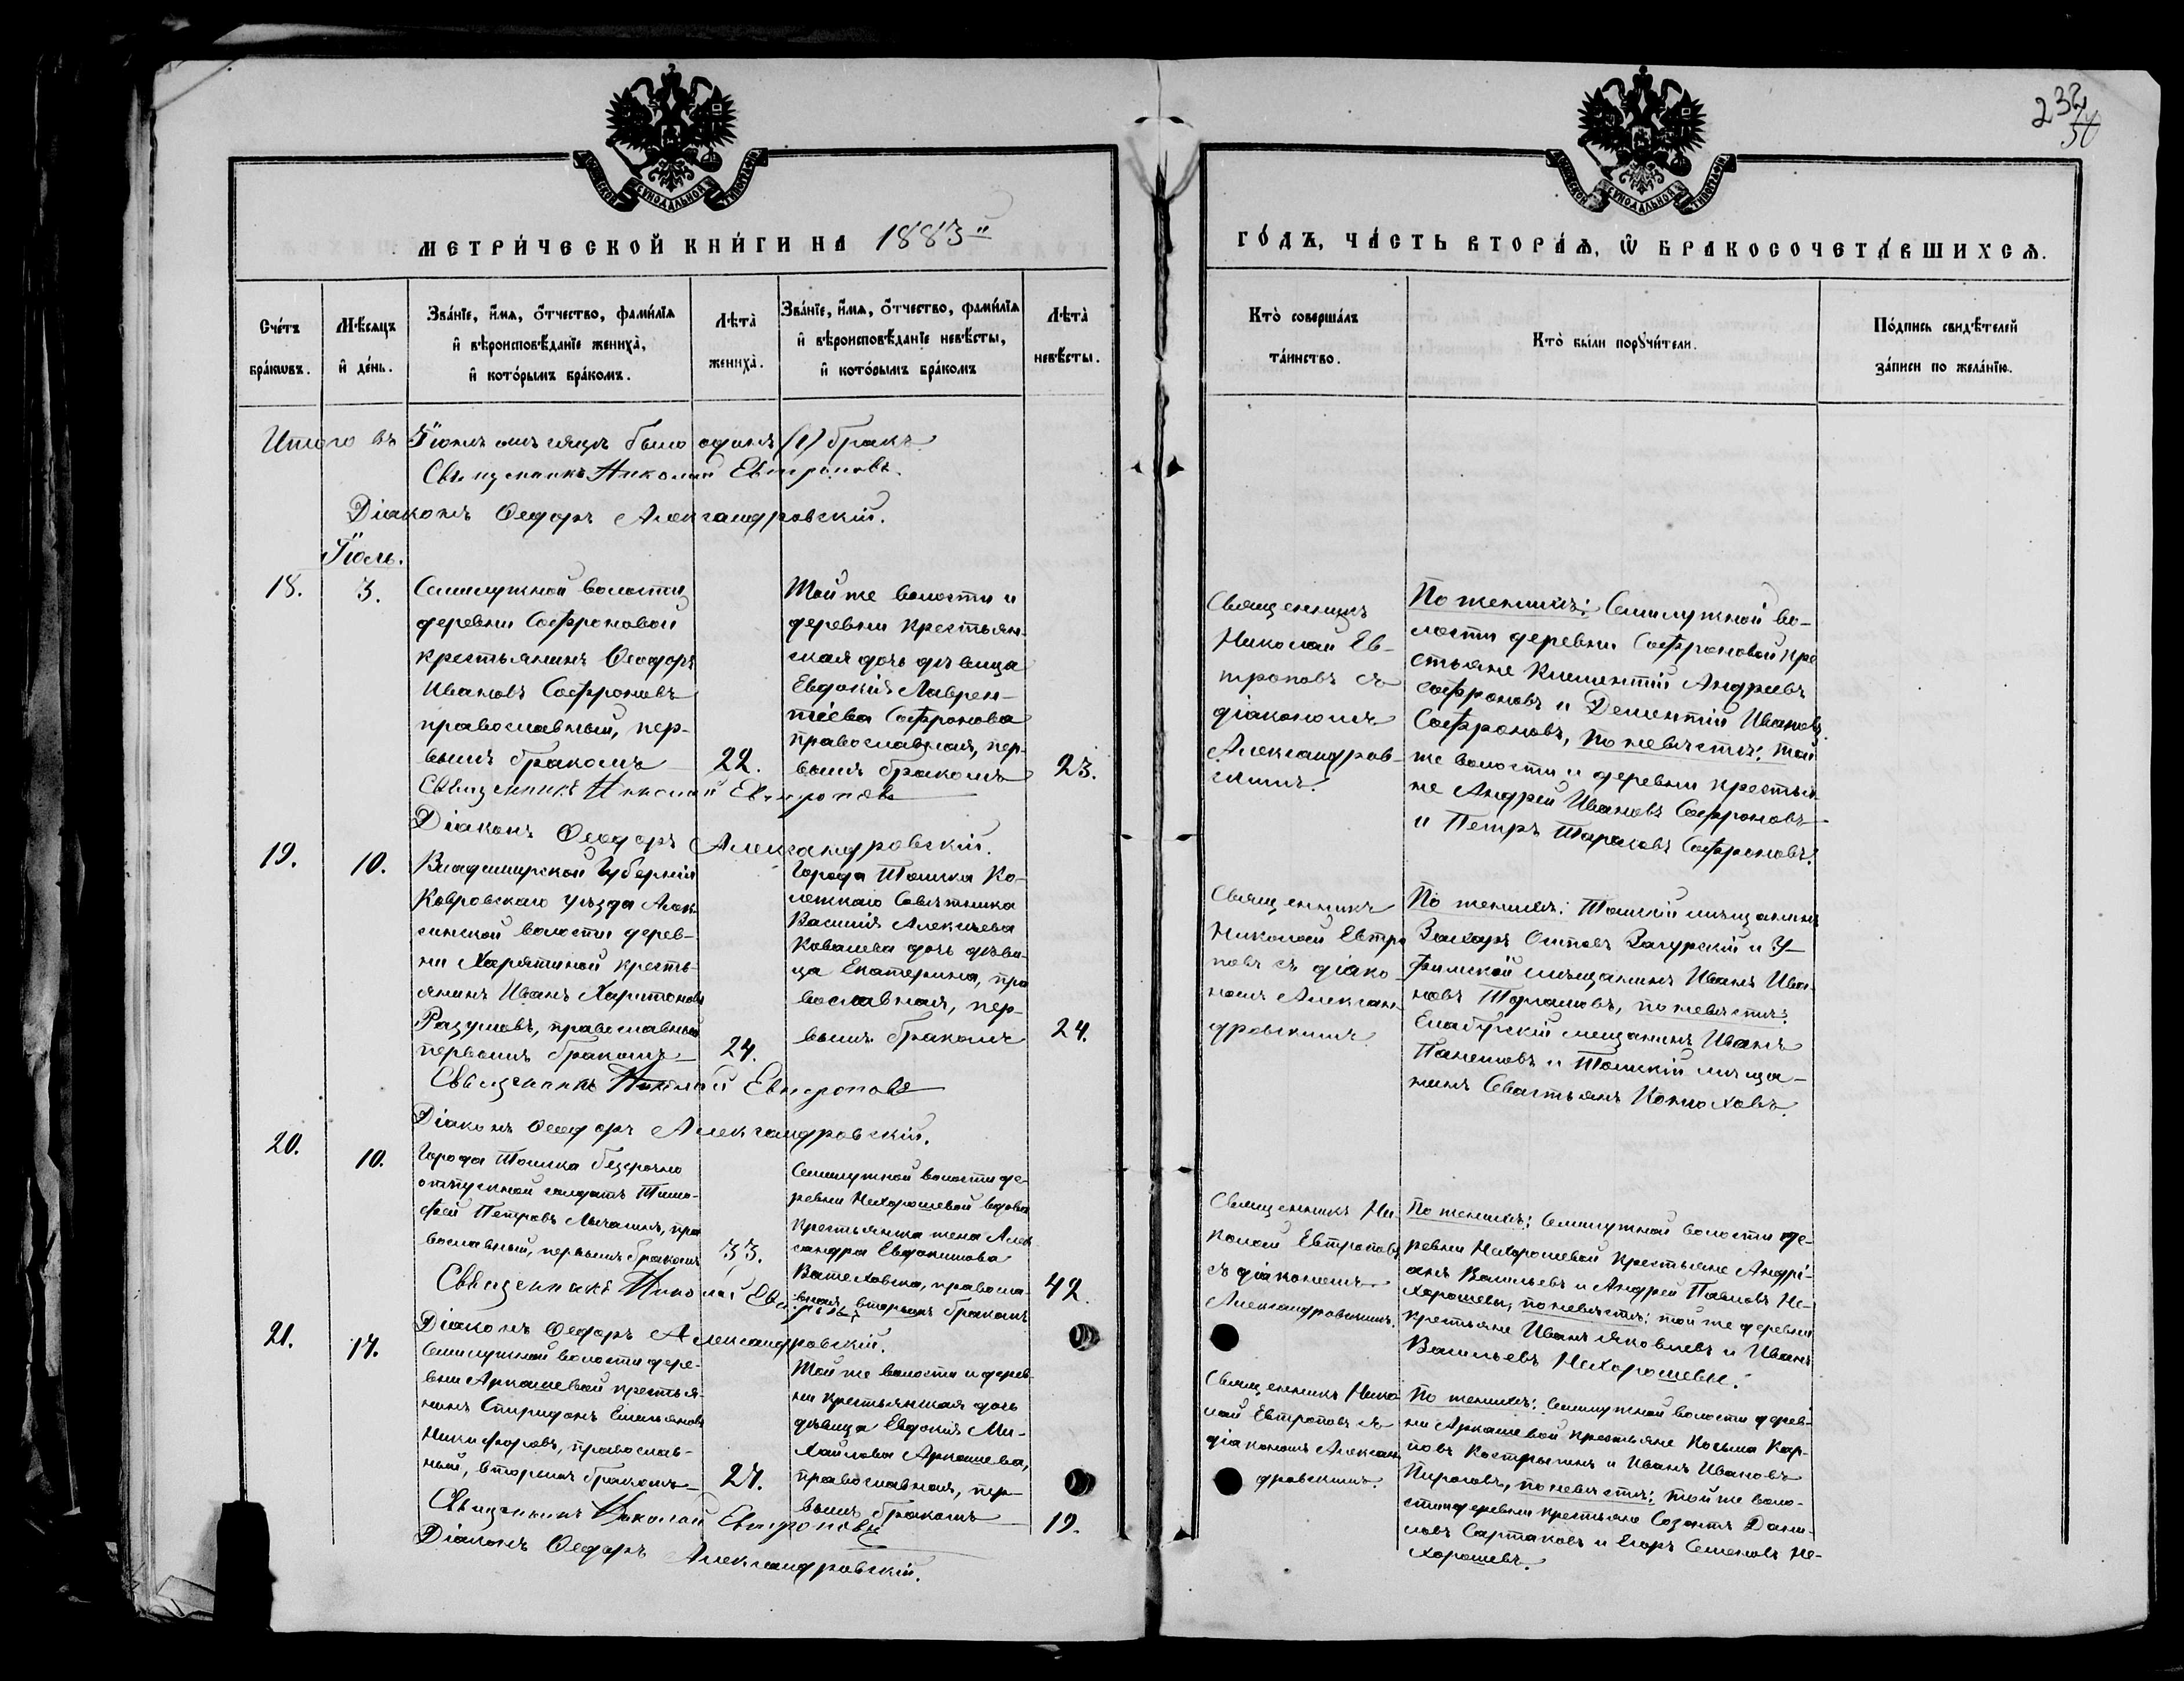 232
50
СѴНОДАЛЬНОЙ
ТИПОГРАФІИ
СѴНОДАЛЬНОЙ
ТИПОГРАФІИ
МЕТРИ́ЧЕСКОЙ КНИ́ГИ НА 1883й
ГО́ДЪ, ЧА́СТЬ ВТОРА́Ѧ, Ѽ БРАКОСОЧЕТА́ВШИХСѦ.
Сче́тъ бра́кѡвъ.
Мѣ́сяцъ и҆ де́нь.
Зва́нїе, и҆́мѧ, ѻ҆́тчество, фами́лїѧ
и҆ вѣроисповѣ́данїе жениха̀,
и҆ кото́рымъ бра́комъ.
Лѣта̀ жениха̀.
Зва́нїе, и҆́мѧ, ѻ҆́тчество, фами́лїѧ
и҆ вѣроисповѣ́данїе невѣ́сты,
и҆ кото́рымъ бра́комъ
Лѣта̀ невѣ́сты.
Кто̀ соверша́лъ та́инство.
Кто̀ бы́ли порꙋчи́тели.
По́дпись свидѣ́телей за́писи по жела́нїю.
Итого въ Іюнѣ мѣсяцѣ было одинъ (1) бракъ
Священникъ Николай Евтроповъ.
Діаконъ Ѳеодоръ Александровскій.
Іюль.
18.
3.
Семилужной волости
деревни Софроновой
крестьянинъ Ѳеодоръ
Ивановъ Софроновъ
православный, пер-
вымъ бракомъ
22.
Той же волости и
деревни крестьян-
ская дочь дѣвица
Евдокія Лаврен-
тіева Софронова
православная, пер-
вымъ бракомъ
23.
Священникъ
Николай Ев-
троповъ съ
діакономъ
Александров-
скимъ.
По женихѣ: Семилужной во-
лости деревни Софроновой кре
стьяне Климентій Андреевъ
Софроновъ и Дементій Ивановъ
Софроновъ, по невѣстѣ: той
же волости и деревни крестья-
не Андрей Ивановъ Софроновъ
и Петръ Тарасовъ Софроновъ.
Священникъ Николай Евтроповъ
Діаконъ Ѳеодоръ Александровскій.
19.
10.
Владимирской Губерніи
Ковровскаго уѣзда Алек-
синской волости дерев-
ни Харятиной кресть-
янинъ Иванъ Харитоновъ
Разумовъ, православный
первымъ бракомъ
24.
Города Томска Ко-
лежскаго Совѣтника
Василія Алексѣева
Ковалева дочь дѣви-
ца Екатерина, пра
вославная, пер-
вымъ бракомъ
24.
Священникъ
Николай Евтро
повъ съ діако-
номъ Алексан-
дровскимъ
По женихѣ: Томскій мѣщанинъ
Захаръ Осиповъ Загурскій и У-
фимской мѣщанинъ Иванъ Ива-
новъ, по невѣстѣ:
Елабугскій мещанинъ Иванъ
и Томскій мѣща-
нинъ Севастьянъ Конюховъ.
Священникъ Николай Евтроповъ
Діаконъ Ѳеодоръ Александровскій.
20.
10.
Города Томска безсрочно
отпускной солдатъ Тимо-
фей Петровъ, пра
вославный, первымъ бракомъ
33.
Семилужной волости де-
ревни Нехорошевой вдова
крестьянка жена Алек-
сандра Евдокимова
правосла-
вная, вторымъ бракомъ
42
Священникъ Ни-
колай Евтроповъ
съ діакономъ
Александровскимъ.
По женихѣ: Семилужной волости де-
ревни Нехорошевой крестьяне Андрі-
анъ Васильевъ и Андрей Павловъ Не-
хорошевы, по невѣстѣ: той же деревни
крестьяне Иванъ Яковлевъ и Иванъ
Васильевъ Нехорошевы.
Священникъ Николай Евтроповъ
Діаконъ Ѳеодоръ Александровскій.
21.
17.
Семилужной волости дере-
вни Аркашевой крестья-
нинъ Спиридонъ Емельяновъ
Никифоровъ, православ-
ный, вторымъ бракомъ
27.
Той же волости и дерев-
ни крестьянская дочь
дѣвица Евдокія Ми-
хайлова Аркашева,
православная, пер-
вымъ бракомъ
19.
Священникъ Нико
лай Евтроповъ съ
діакономъ Алексан
дровскимъ.
По женихѣ: Семилужной волости дерев-
ни Аркашевой крестьяне Косьма Кар-
повъ Кострыкинъ и Иванъ Ивановъ
Пироговъ, по невѣстѣ: той же воло-
сти и деревни крестьяне Созонтъ Дани-
ловъ Сартаковъ и Егоръ Семеновъ Не-
хорошевъ.
Священникъ Николай Евтроповъ
Діаконъ Ѳеодоръ Александровскій.